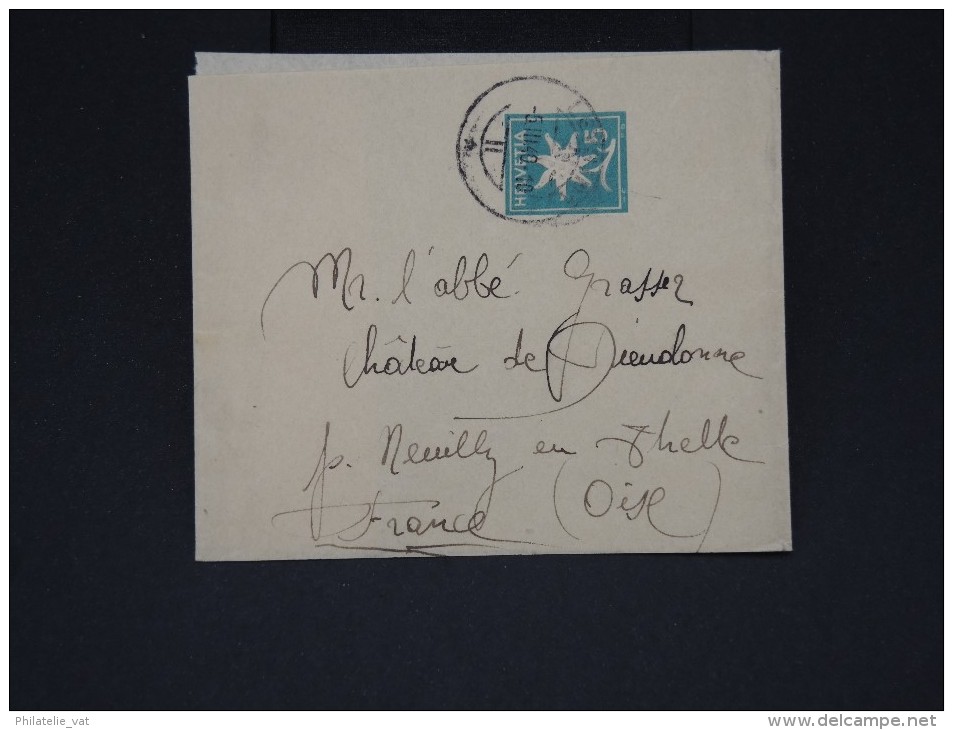 HELVETIA 5
-6.III.40-18
Mr. l'abbé Grasser
Château de Dieudonne
p. Neuilly en Thelle
France (Oise)
Philatelie_vat
www.delcampe.net